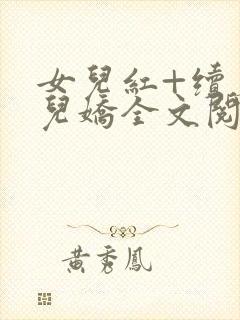 女兒紅+續
兒嬌全文閱
黃秀鳳